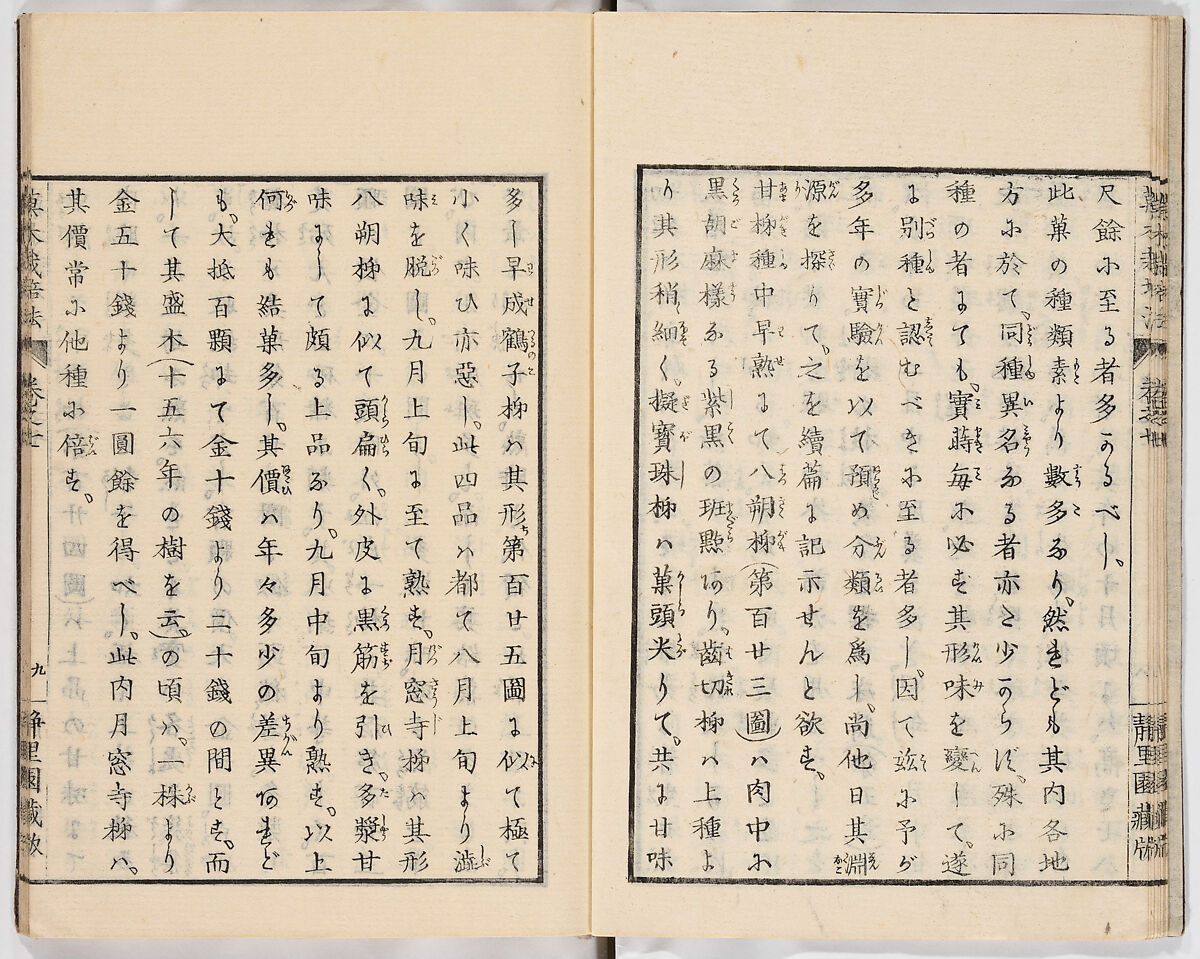 尺餘ふ至る者多かるべし。
此菓の種類素より數多なり。然れども其内各地
方ふ於て。同種異名なる者亦々少からず。殊ふ同
種の者にても。實蒔毎ふ必ず其形味を變して。遂
に別種と認むべきふ至る者多し。因て玆ふ予が
多年の實驗を以て預め分類を爲し。尚他日其淵
源を探りて。之を續篇に記示せんと欲す。
甘柹種中早熟にて八朔柹(第百廿三圖)ハ肉中ふ
黒胡麻樣なる紫黒の斑點あり。齒切柹ハ上種よ
り其形稍細く。擬寶珠柹ハ菓頭尖りて。共に甘味
靜里園藏版
多し早成鶴子柹ハ其形第百廿五圖に似て極て
小く味ひ亦惡し。此四品ハ都て八月上旬より澁
味を脱し。九月上旬に至て熟す。月窓寺柹ハ其形
八朔柹に似て頭扁く。外皮に黒筋を引き。多漿甘
味にして頗る上品なり。九月中旬より熟す。以上
何れも結菓多し。其價ハ年々多少の差異あれど
も。大抵百顆にて金十錢より二十錢の間とす。而
して其盛木(十五六年の樹を云。)の頃ハ。一株より
金五十錢より一圓餘を得べし。此内月窓寺柹ハ。
其價常ふ他種ふ倍す。
菓木栽培法
卷之七
九
靜里園藏版